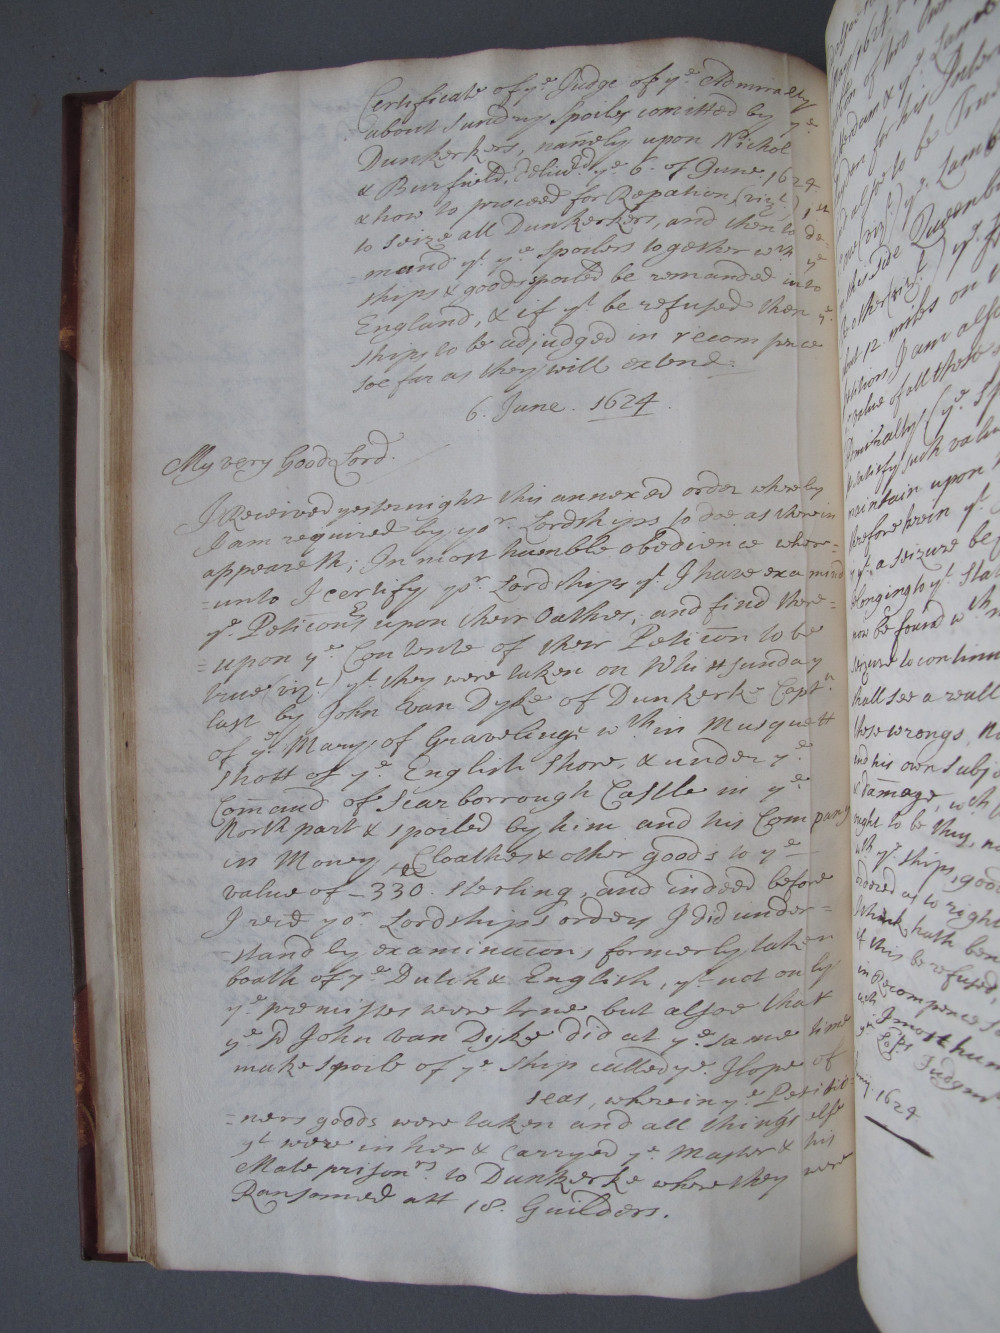 Certificate of yᵉ Judge of yᵉ Admiralty
about sundry spoiles comitted by yᵉ
Dunkerkers, namely upon Nichol
& Burfield, Deliuᵈ yᵉ 6. of June 1624
& how to proceed for Repation (vizᵗ) 1ˢᵗ
to seize all Dunkerkers, and then to de=
=mand yᵗ yᵉ spoilers together wᵗʰ yᵉ
ships & goods spoiled be remanded into
England, & if yᵗ be refused then yᵉ
ships to be adjudged in recompence
soe far as they will extend.
6. June. 1624.
My very Good Lord.
I Received yesternight this annexed order whereby
I am required by yoʳ Lordships to doe as therein
appeareth; In most humble obedience where=
=unto I certify yoʳ Lordships yᵗ I have examined
yᵉ Peticon̄ʳˢ upon their Oathes, and find there=
=upon yᵉ Contente of their Peticōn to be
true (vizᵗ) yᵗ they were taken on Whittsunday
last by John Van Dyke of Dunkerke Captⁿ
of yᵉ Mary of Gravelinge wᵗʰin Musquett
Shott of yᵉ English Shore, & under yᵉ
Com̄and of Scarborrough Castle in yᵉ
North part & spoiled by him and his Company
in Money, Cloathes & other goods to yᵉ
value of 330ˡ sterling, and indeed before
I recᵈ yoʳ Lordships order I did under=
=stand by examinac̄on, formerly taken
boath of yᵉ Dutch & English, yᵗ not only
yᵉ premisses were true but alsoe that
yᵉ sᵈ John Van Dyke did at yᵉ same time
make spoile of yᵉ ship called yᵉ Hope of
seas, wherein yᵉ Petitio=
=ners goods were taken and all things else
yᵗ were in her & Carryed yᵉ Master & his
Mate prisonʳˢ to Dunkerke where they were
Ransomed att 18. Guilders.
May 1624
to be
Lamb
Queenb
12 miles on
I am also
value of all those
Admiralty (yᵉ
satisfy such value
maintain upon
therefore herein yᵗ
yᵗ a seizure be
belonging to yᵉ Sta
now be found wᵗʰ
seizure to continue
shall see a reall
those wrongs,
and his own subj
& dam̄age, wᶜʰ
ought to be thus,
wᵗʰ yᵉ ships, good
ordered as to right
Which hath been
if this be refused,
in Recompence
I most hum
Loᵖˢ
Judgmᵗ
1624